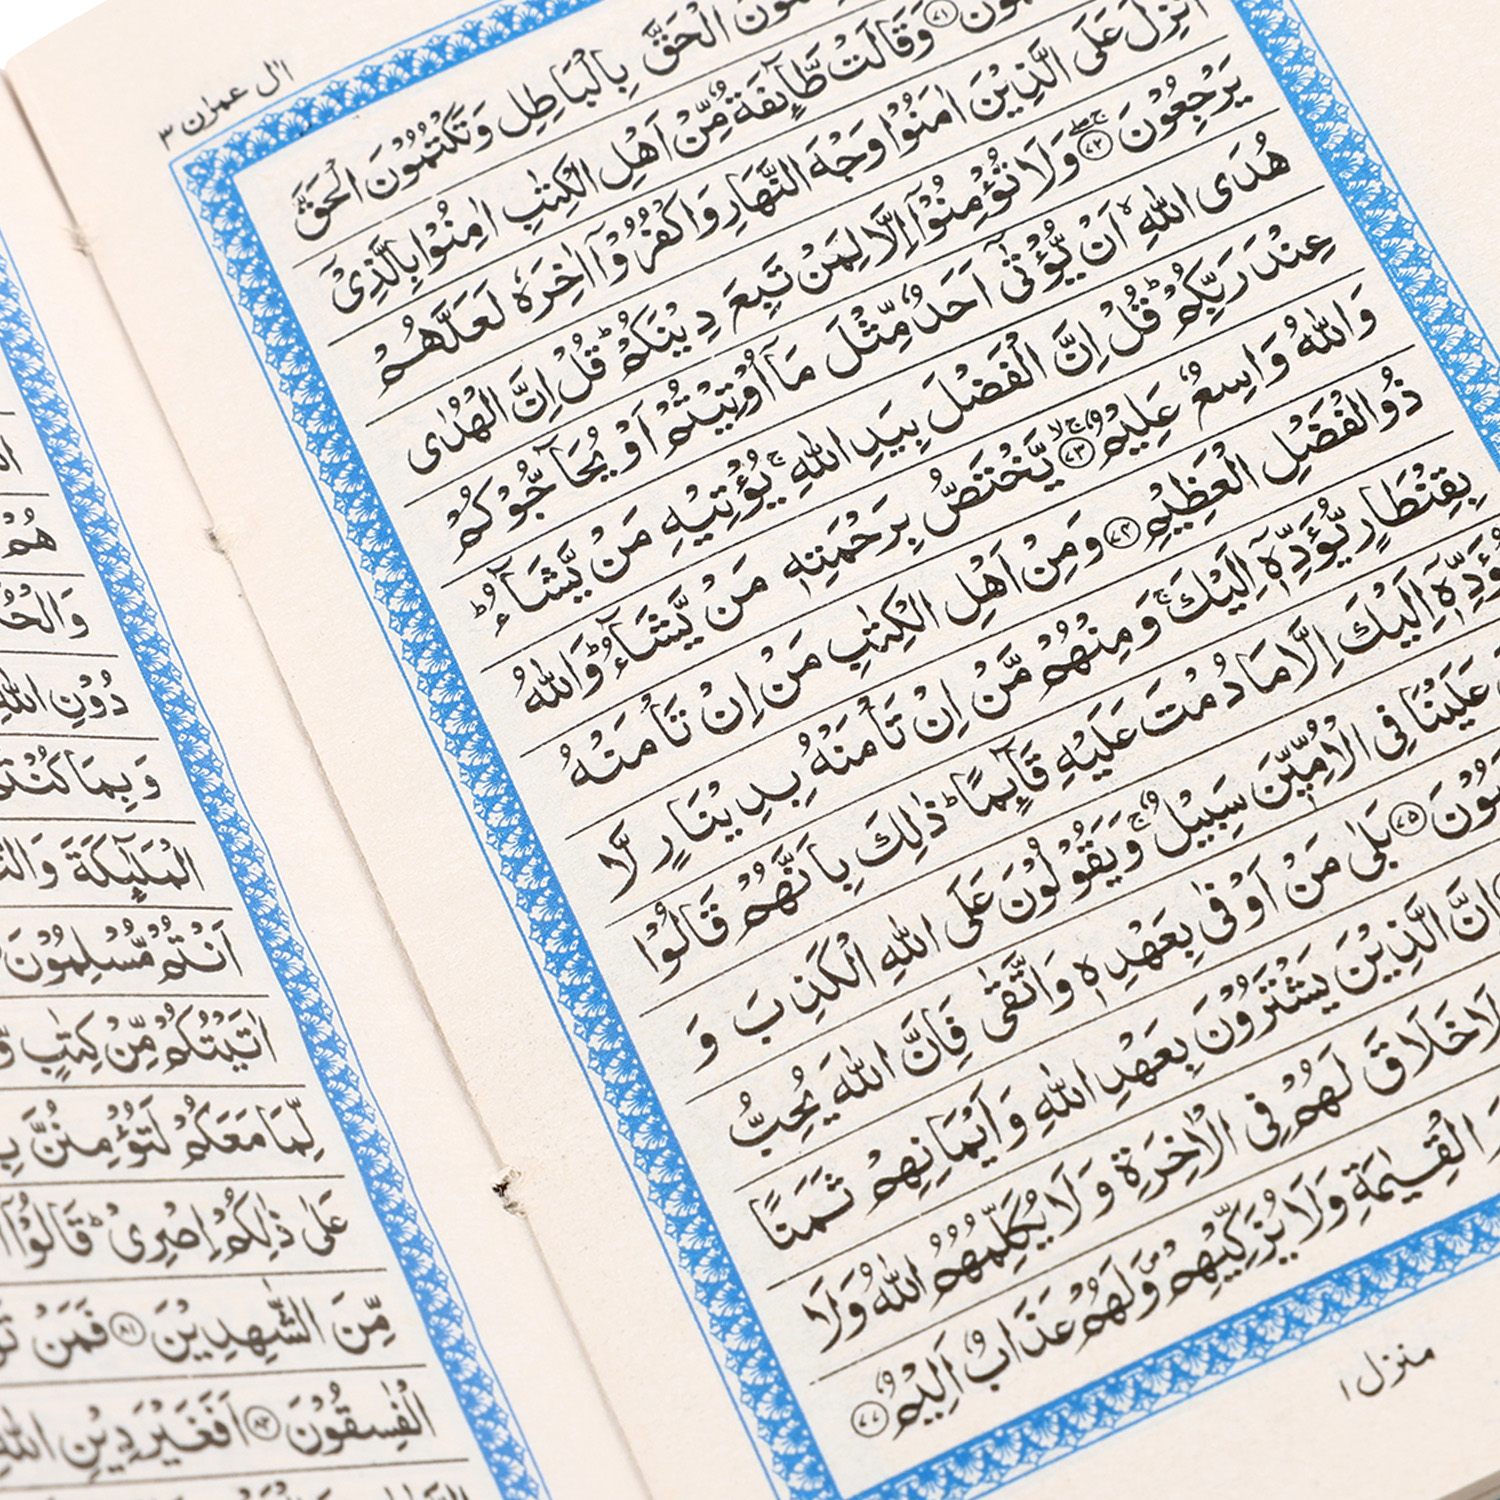 اٰل عمرٰن ٣
الْحَقَّ بِالْبَاطِلِ وَتَكْتُمُوْنَ الْحَقَّ
٧١ وَقَالَتْ طَّآئِفَةٌ مِّنْ اَهْلِ الْكِتٰبِ اٰمِنُوْا بِالَّذِیْۤ
اُنْزِلَ عَلَی الَّذِیْنَ اٰمَنُوْا وَجْهَ النَّهَارِ وَاكْفُرُوْۤا اٰخِرَهٗ لَعَلَّهُمْ
یَرْجِعُوْنَ ٧٢ وَلَا تُؤْمِنُوْۤا اِلَّا لِمَنْ تَبِعَ دِیْنَكُمْ ؕ قُلْ اِنَّ الْهُدٰی
هُدَی اللّٰهِ ۙ اَنْ یُّؤْتٰۤی اَحَدٌ مِّثْلَ مَاۤ اُوْتِیْتُمْ اَوْ یُحَآجُّوْكُمْ
عِنْدَ رَبِّكُمْ ؕ قُلْ اِنَّ الْفَضْلَ بِیَدِ اللّٰهِ ۚ یُؤْتِیْهِ مَنْ یَّشَآءُ ؕ
وَاللّٰهُ وَاسِعٌ عَلِیْمٌ ٧٣ یَّخْتَصُّ بِرَحْمَتِهٖ مَنْ یَّشَآءُ ؕ وَاللّٰهُ
ذُو الْفَضْلِ الْعَظِیْمِ ٧٤ وَمِنْ اَهْلِ الْكِتٰبِ مَنْ اِنْ تَاْمَنْهُ
بِقِنْطَارٍ یُّؤَدِّهٖۤ اِلَیْكَ ۚ وَمِنْهُمْ مَّنْ اِنْ تَاْمَنْهُ بِدِیْنَارٍ لَّا
یُؤَدِّهٖۤ اِلَیْكَ اِلَّا مَا دُمْتَ عَلَیْهِ قَآئِمًا ؕ ذٰلِكَ بِاَنَّهُمْ قَالُوْا
عَلَیْنَا فِی الْاُمِّیّٖنَ سَبِیْلٌ ۚ وَیَقُوْلُوْنَ عَلَی اللّٰهِ الْكَذِبَ وَ
٧٥ بَلٰی مَنْ اَوْفٰی بِعَهْدِهٖ وَاتَّقٰی فَاِنَّ اللّٰهَ یُحِبُّ
اِنَّ الَّذِیْنَ یَشْتَرُوْنَ بِعَهْدِ اللّٰهِ وَاَیْمَانِهِمْ ثَمَنًا
لَا خَلَاقَ لَهُمْ فِی الْاٰخِرَةِ وَلَا یُكَلِّمُهُمُ اللّٰهُ وَلَا
الْقِیٰمَةِ وَلَا یُزَكِّیْهِمْ ۪ وَلَهُمْ عَذَابٌ اَلِیْمٌ ٧٧
منزل ١
هُمْ
دُوْنِ اللّٰهِ
وَبِمَا كُنْتُمْ
الْمَلٰٓئِكَةَ
اَنْتُمْ مُّسْلِمُوْنَ
اٰتَیْتُكُمْ مِّنْ كِتٰبٍ
لِّمَا مَعَكُمْ لَتُؤْمِنُنَّ
عَلٰی ذٰلِكُمْ اِصْرِیْ ؕ قَالُوْۤا
مِّنَ الشّٰهِدِیْنَ ٨١ فَمَنْ
الْفٰسِقُوْنَ ٨٢ اَفَغَیْرَ دِیْنِ اللّٰهِ